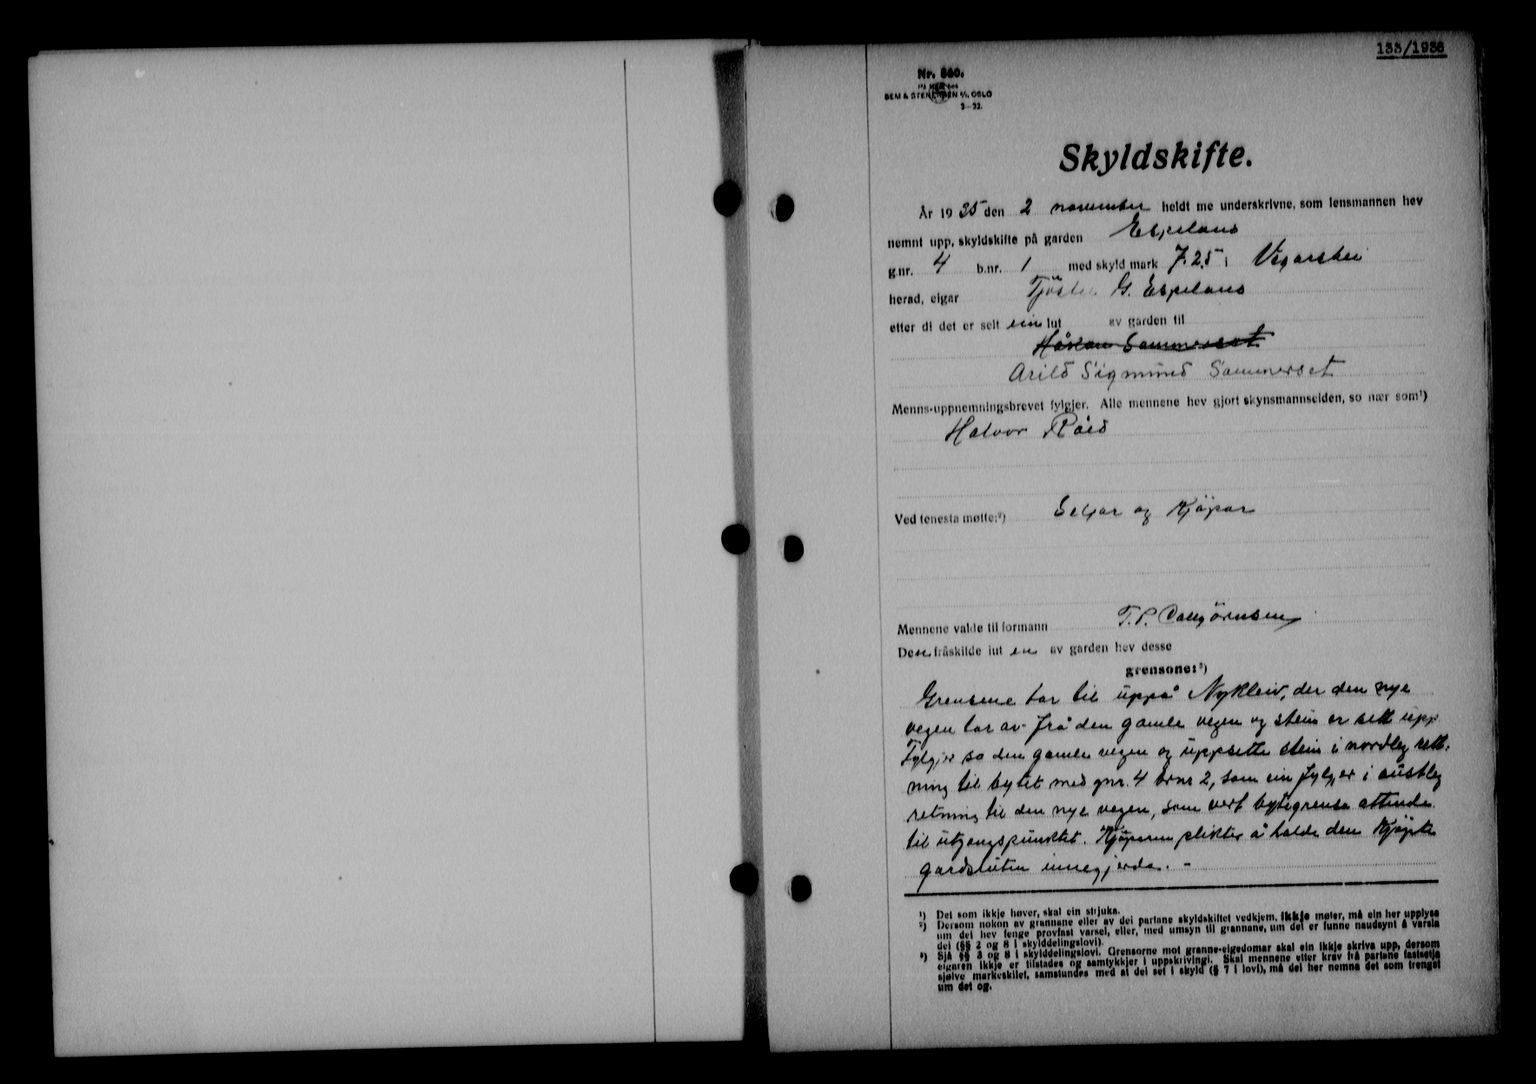 133/1936
Nr. 860.
SEM & STENERSEN A/S, OSLO
3—32.
Skyldskifte.
År 1935 den 2 november heldt me underskrivne, som lensmannen hev
nemnt upp, skyldskifte på garden Espeland
g.nr. 4 b.nr. 1 med skyld mark 7.25 i Vegårshei
herad, eigar G. Espeland
etter di det er selt ein lut av garden til
Håkon Sammerset
Arild Sigmund Sammerset
Menns-uppnemningsbrevet fylgjer. Alle mennene hev gjort skynsmannseiden, so nær som¹)
Halvor Råed
Ved tenesta møtte:²) Seljar og Kjöpar
Mennene valde til formann T. P. Dalljörnsen
Den fråskilde lut en av garden hev desse
grensone:³)
Grensene tar til uppå Nykleiv, der den nye
vegen tar av frå den gamle vegen og stein er sett upp.
Fylgjer so den gamle vegen og uppsette stein i nordleg rett-
ning til bytet med gnr. 4 brnr 2, som ein fylgjer i austleg
retning til den nye vegen, som vert bytegrensa attende
til utgangspunktet. Kjöparen plikter å halde den Kjöpte
gardsluten innegjerda. -
¹) Det som ikkje høver, skal ein strjuka.
²) Dersom nokon av grannane eller av dei partane skyldskiftet vedkjem, ikkje møter, må ein her upplysa
um dei hev fenge provfast varsel, eller, med umsyn til grannane, um det er funne naudsynt å varsla
dei (§§ 2 og 8 i skylddelingslovi).
³) Sjå §§ 3 og 8 i skylddelingslovi. Grensorne mot granne-eigedomar skal ein ikkje skriva upp, dersom
eigaren ikkje er tilstades og samtykkjer i uppskrivingi. Skal mennene etter krav frå partane fastsetja
sjølve markeskilet, samstundes med at dei set i skyld (§ 7 i lovi), må dei her nemna det som trengst
um det og.